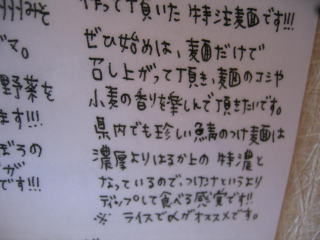 作って頂いた特注麺です!!!
ぜひ始めは、麺だけで
召し上がって頂き、麺のコシや
小麦の香りを楽しんで頂きたいです。
県内でも珍しい鯖のつけ麺は
濃厚よりはるか上の特濃と
なっているので、つけたというより
ディップして食べる感覚です!!
※ ライスで〆がオススメです。
みそ
マ。
野菜を
ます!!!
ぼうの
が
です!!!